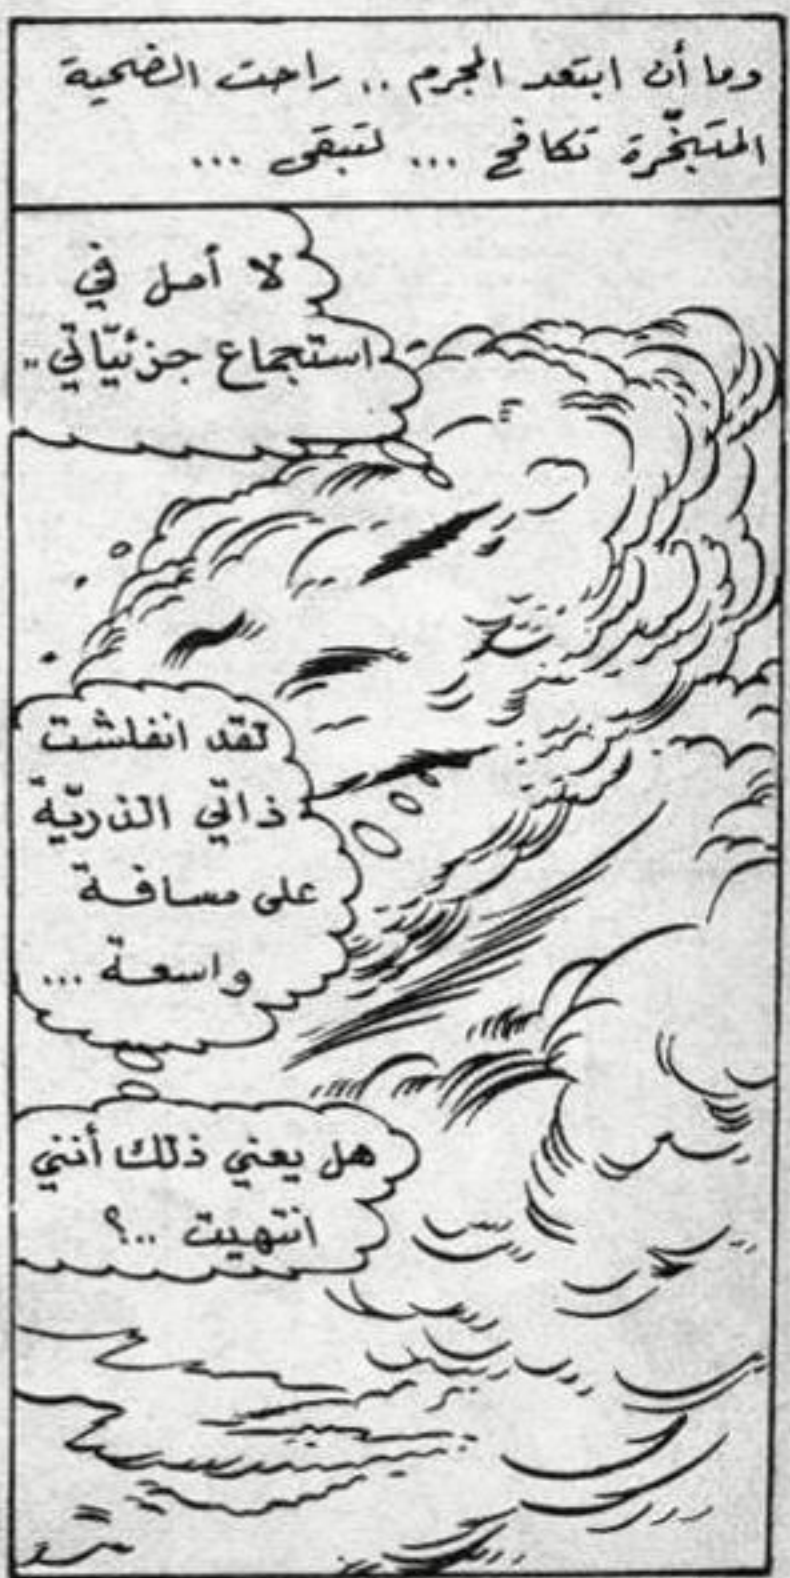 وما أن ابتعد المجرم .. راحت الضحية
المتبخّرة تكافح ... لتبقى ...
لا أمل في
استجماع جزئيّاتي ..
لقد انفلشت
ذاتي الذريّة
على مسافة
واسعة ...
هل يعني ذلك أنني
انتهيت ..؟